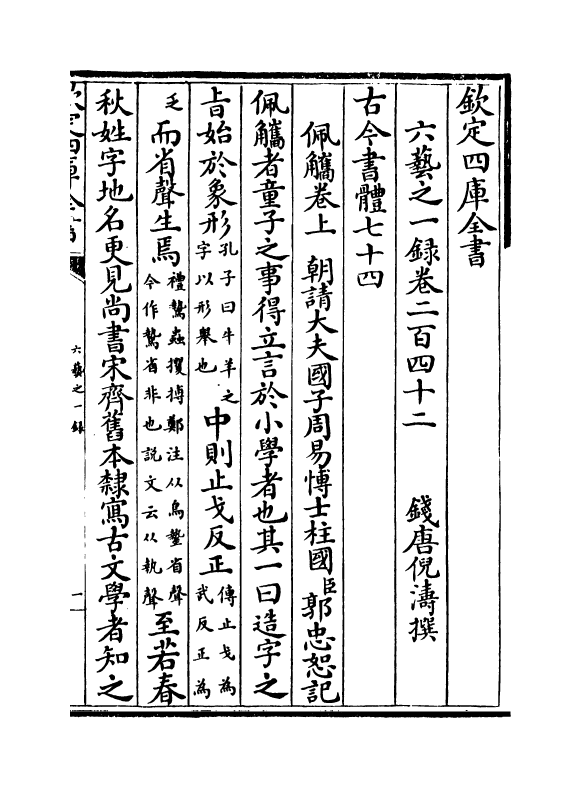 欽定四庫全書
六藝之一録卷二百四十二　錢唐倪濤撰
古今書體七十四
佩觿卷上　朝請大夫國子周易博士柱國臣郭忠恕記
佩觿者童子之事得立言於小學者也其一曰造字之
旨始於象形孔子曰牛羊之字以形舉也中則止戈反正傳止戈為武反正為
乏而省聲生焉禮鷙蟲攫搏鄭注从鳥蟄省聲今作鷙省非也説文云从執聲至若春
秋姓字地名更見尚書宋齊舊本隸寫古文學者知之
六藝之一録
一